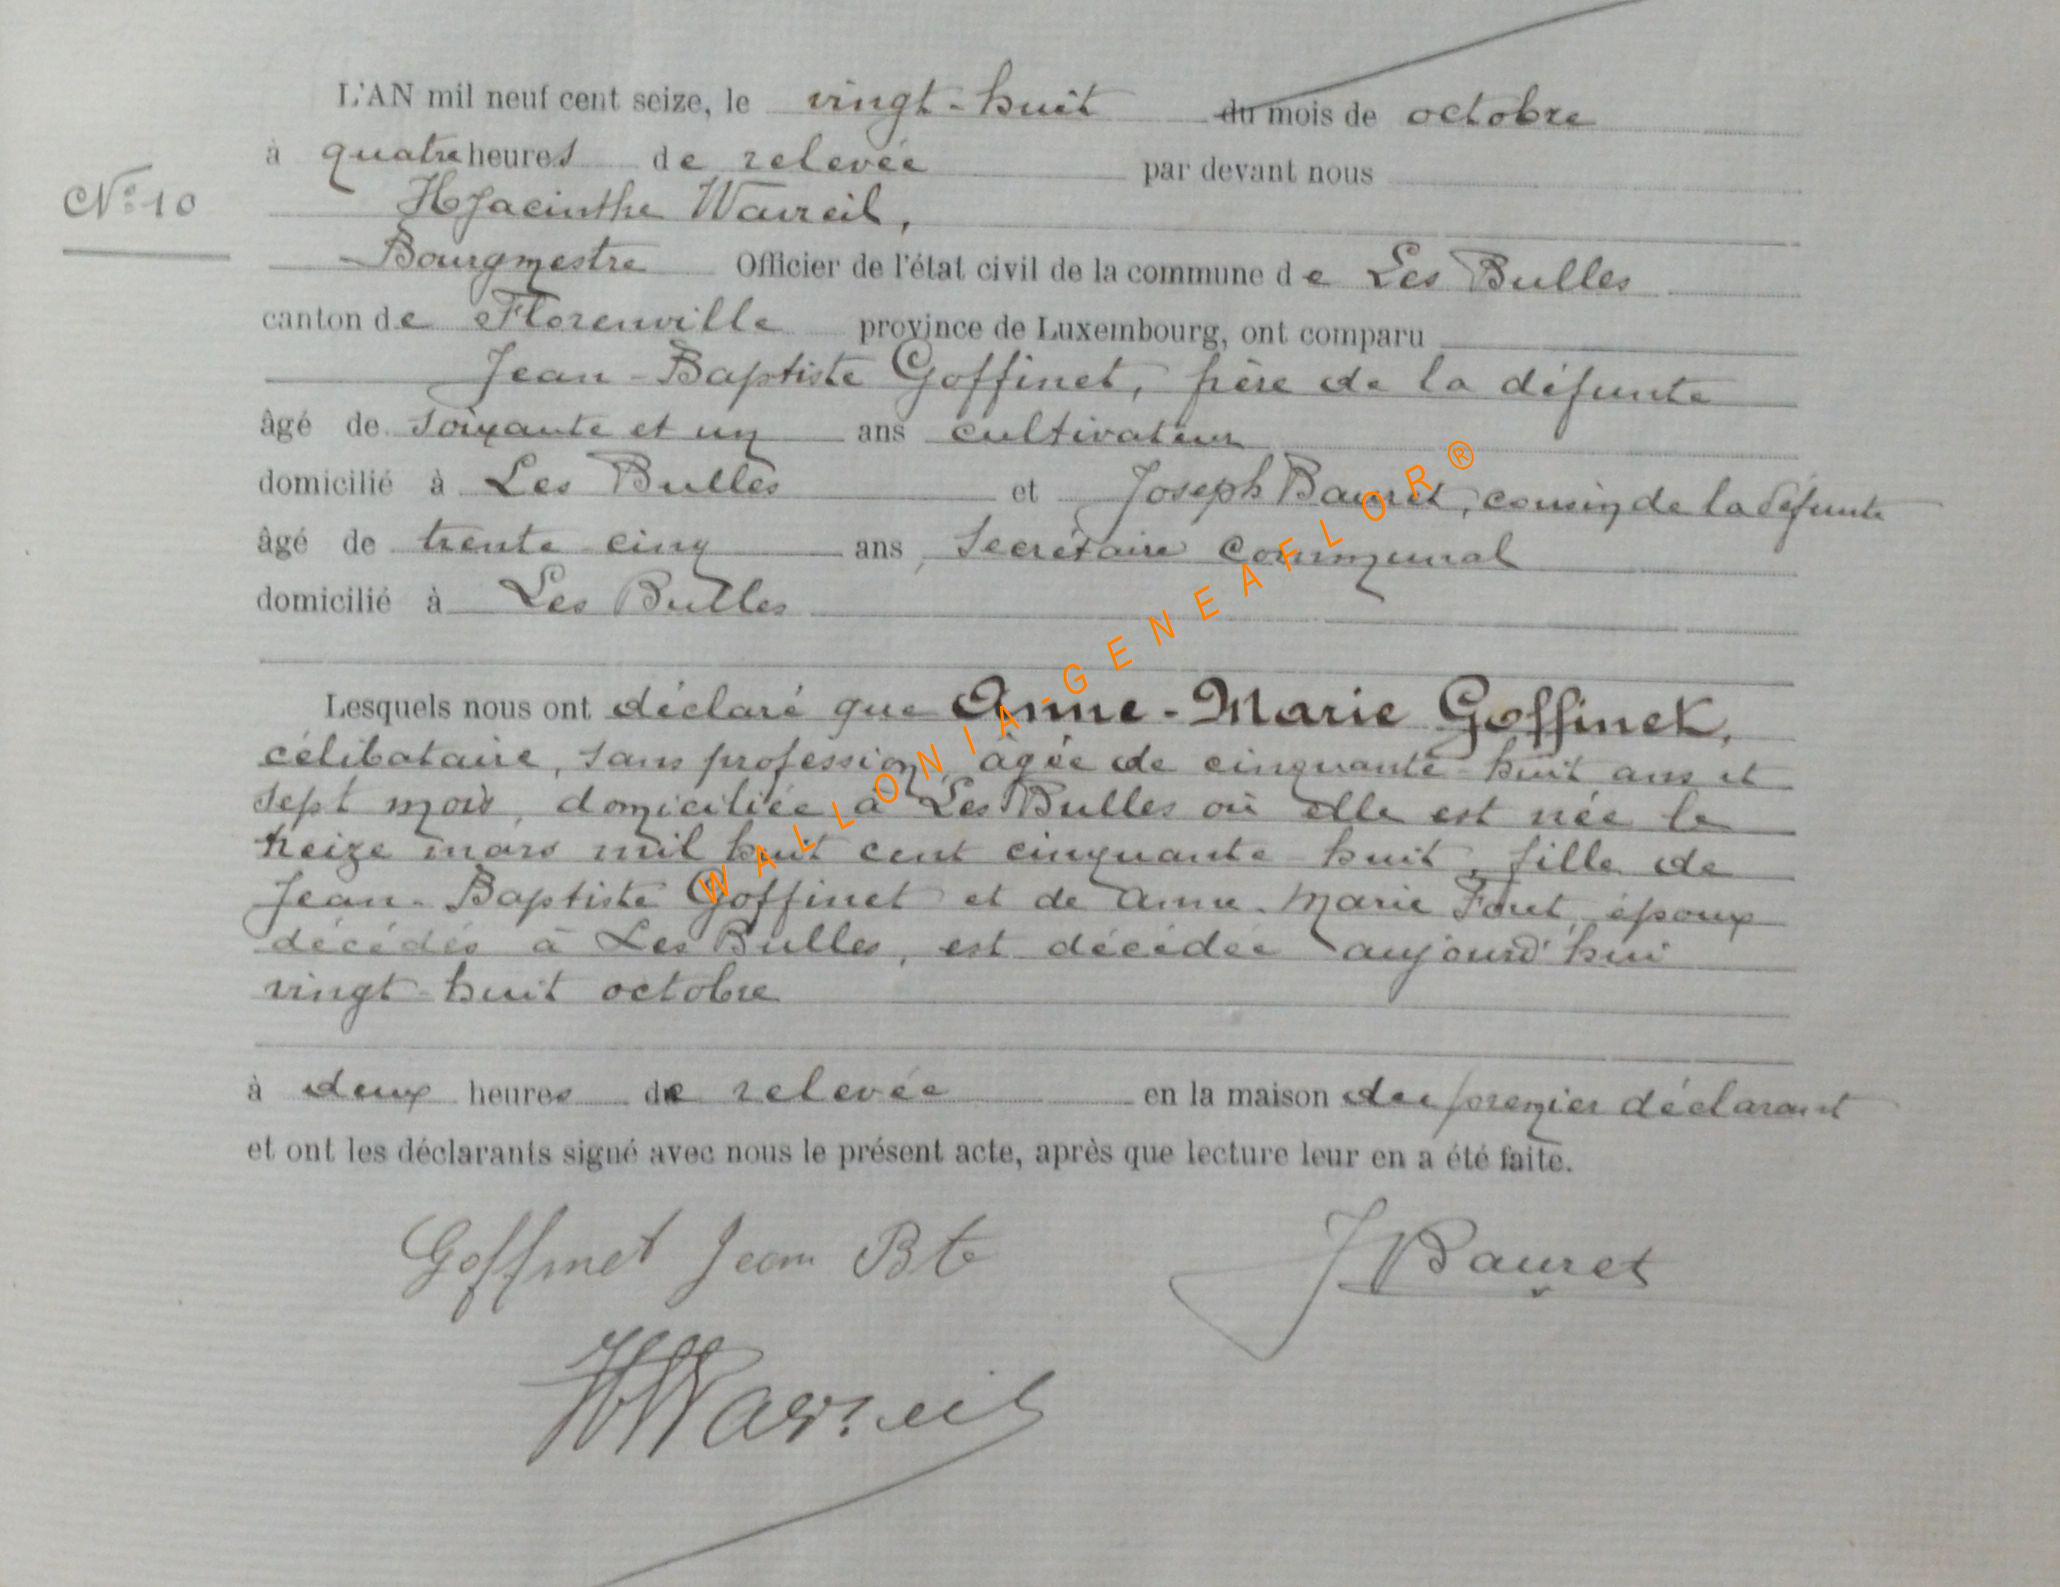 L'AN mil neuf cent seize, le vingt-huit du mois de octobre
à quatre heures de relevée par devant nous
N° 10
Hyacinthe Wavreil,
Bourgmestre Officier de l'état civil de la commune de Les Bulles
canton de Florenville province de Luxembourg, ont comparu
Jean-Baptiste Goffinet, frère de la défunte
âgé de soixante et un ans cultivateur
domicilié à Les Bulles et Joseph Bauret, cousin de la défunte
âgé de trente cinq ans, Secrétaire Communal
domicilié à Les Bulles
Lesquels nous ont déclaré que Anne-Marie Goffinet,
célibataire, sans profession, âgée de cinquante-huit ans et
sept mois, domiciliée à Les Bulles où elle est née le
treize mars mil huit cent cinquante-huit, fille de
Jean-Baptiste Goffinet et de Anne-Marie, époux
décédés à Les Bulles, est décédée aujourd'hui
vingt-huit octobre
à deux heures de relevée en la maison du premier déclarant
et ont les déclarants signé avec nous le présent acte, après que lecture leur en a été faite.
Goffinet Jean Bte
J Bauret
H Wavreil
WALLONIA-GENEAFLOR®